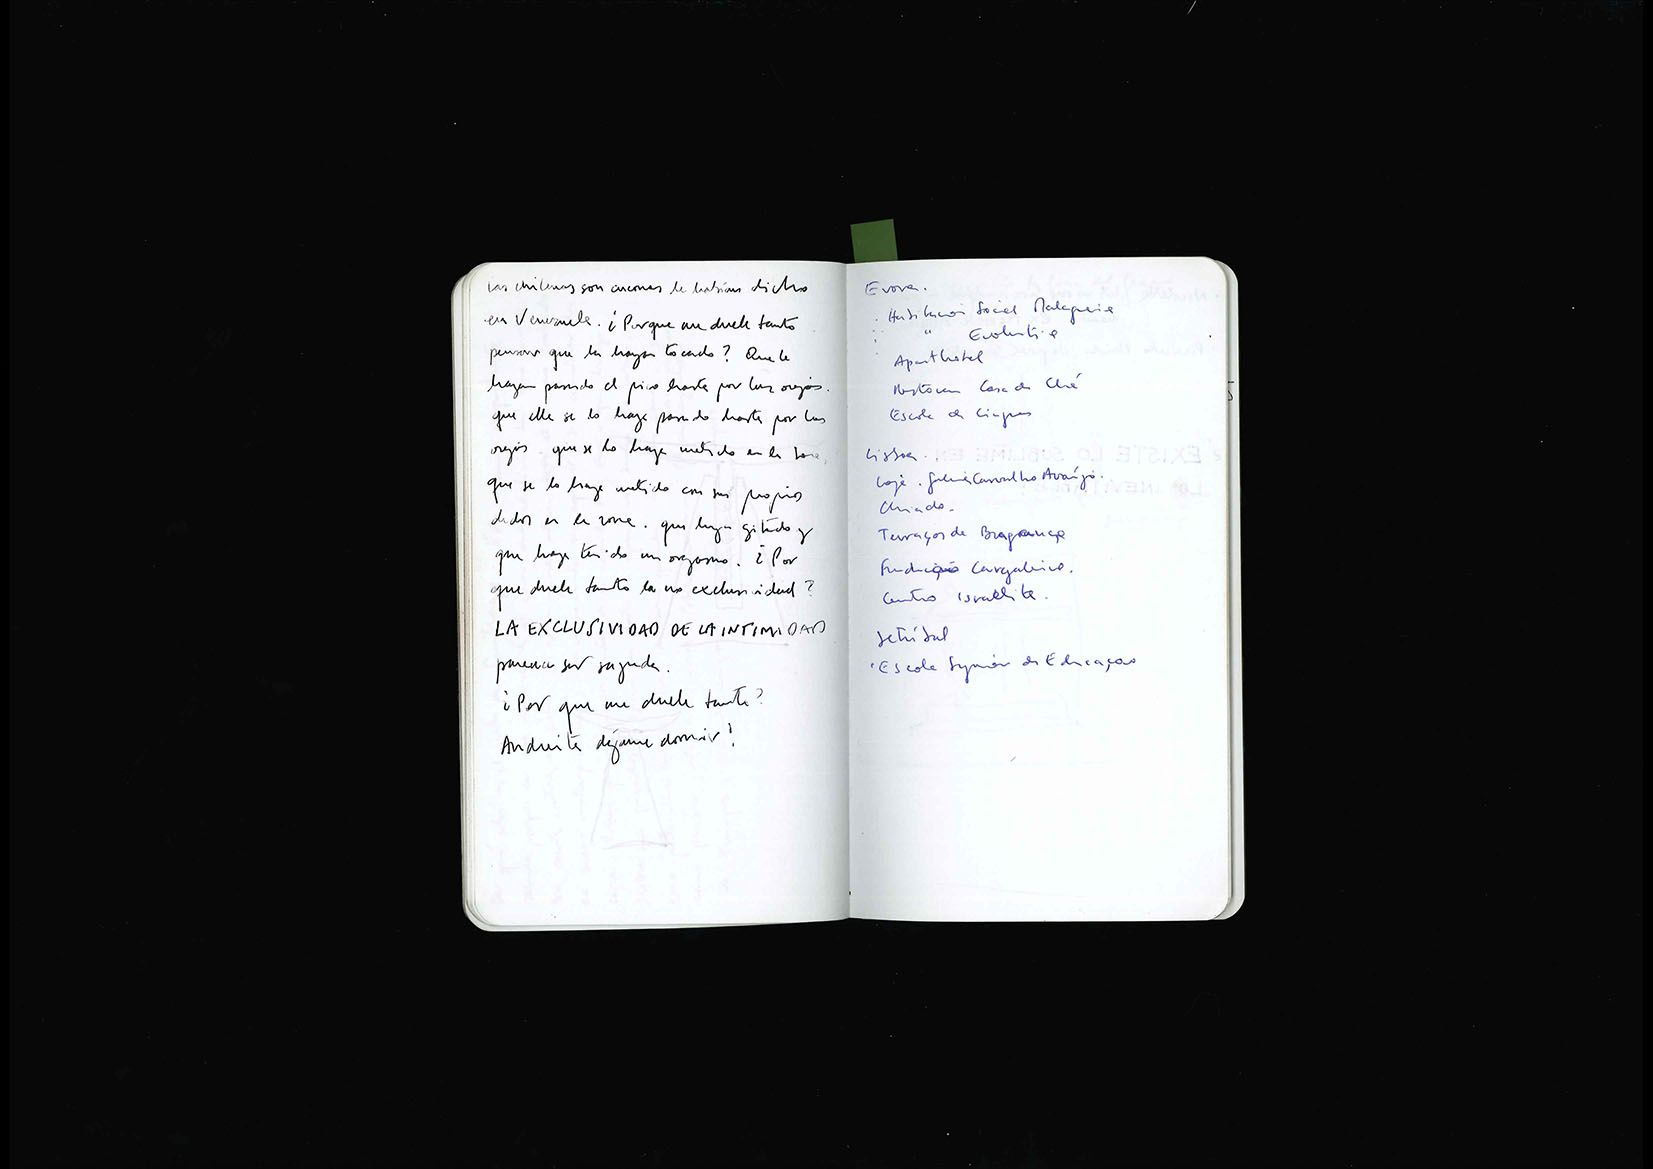 las chilenas son cucones le habían dicho
en Venezuela. ¿Porque me duele tanto
pensar que la hayan tocado? Que le
hayan pasado el pico hasta por las orejas.
que ella se lo haya pasado hasta por las
orejas que se lo haya metido en la
que se lo haya metido con sus propios
dedos en la zorra. que haya gritado y
que haya tenido un orgasmo. ¿Por
que duele tanto la no exclusividad?
LA EXCLUSIVIDAD DE LA INTIMIDAD
parecia ser sagrada.
¿Por que me duele tanto?
Andreita déjame dormir!
Evora.
Habitacao Social Malagueira
"
Aparthotel
Casa de Chá
Escola de Linguas
EXISTE LO SUBLIME EN
Lisboa.
Loja. Carvalho Araújo.
Chiado.
Terraços de Bragança
Fundação
Centro Israelita.
Setúbal
Escola Superior de Educaçao